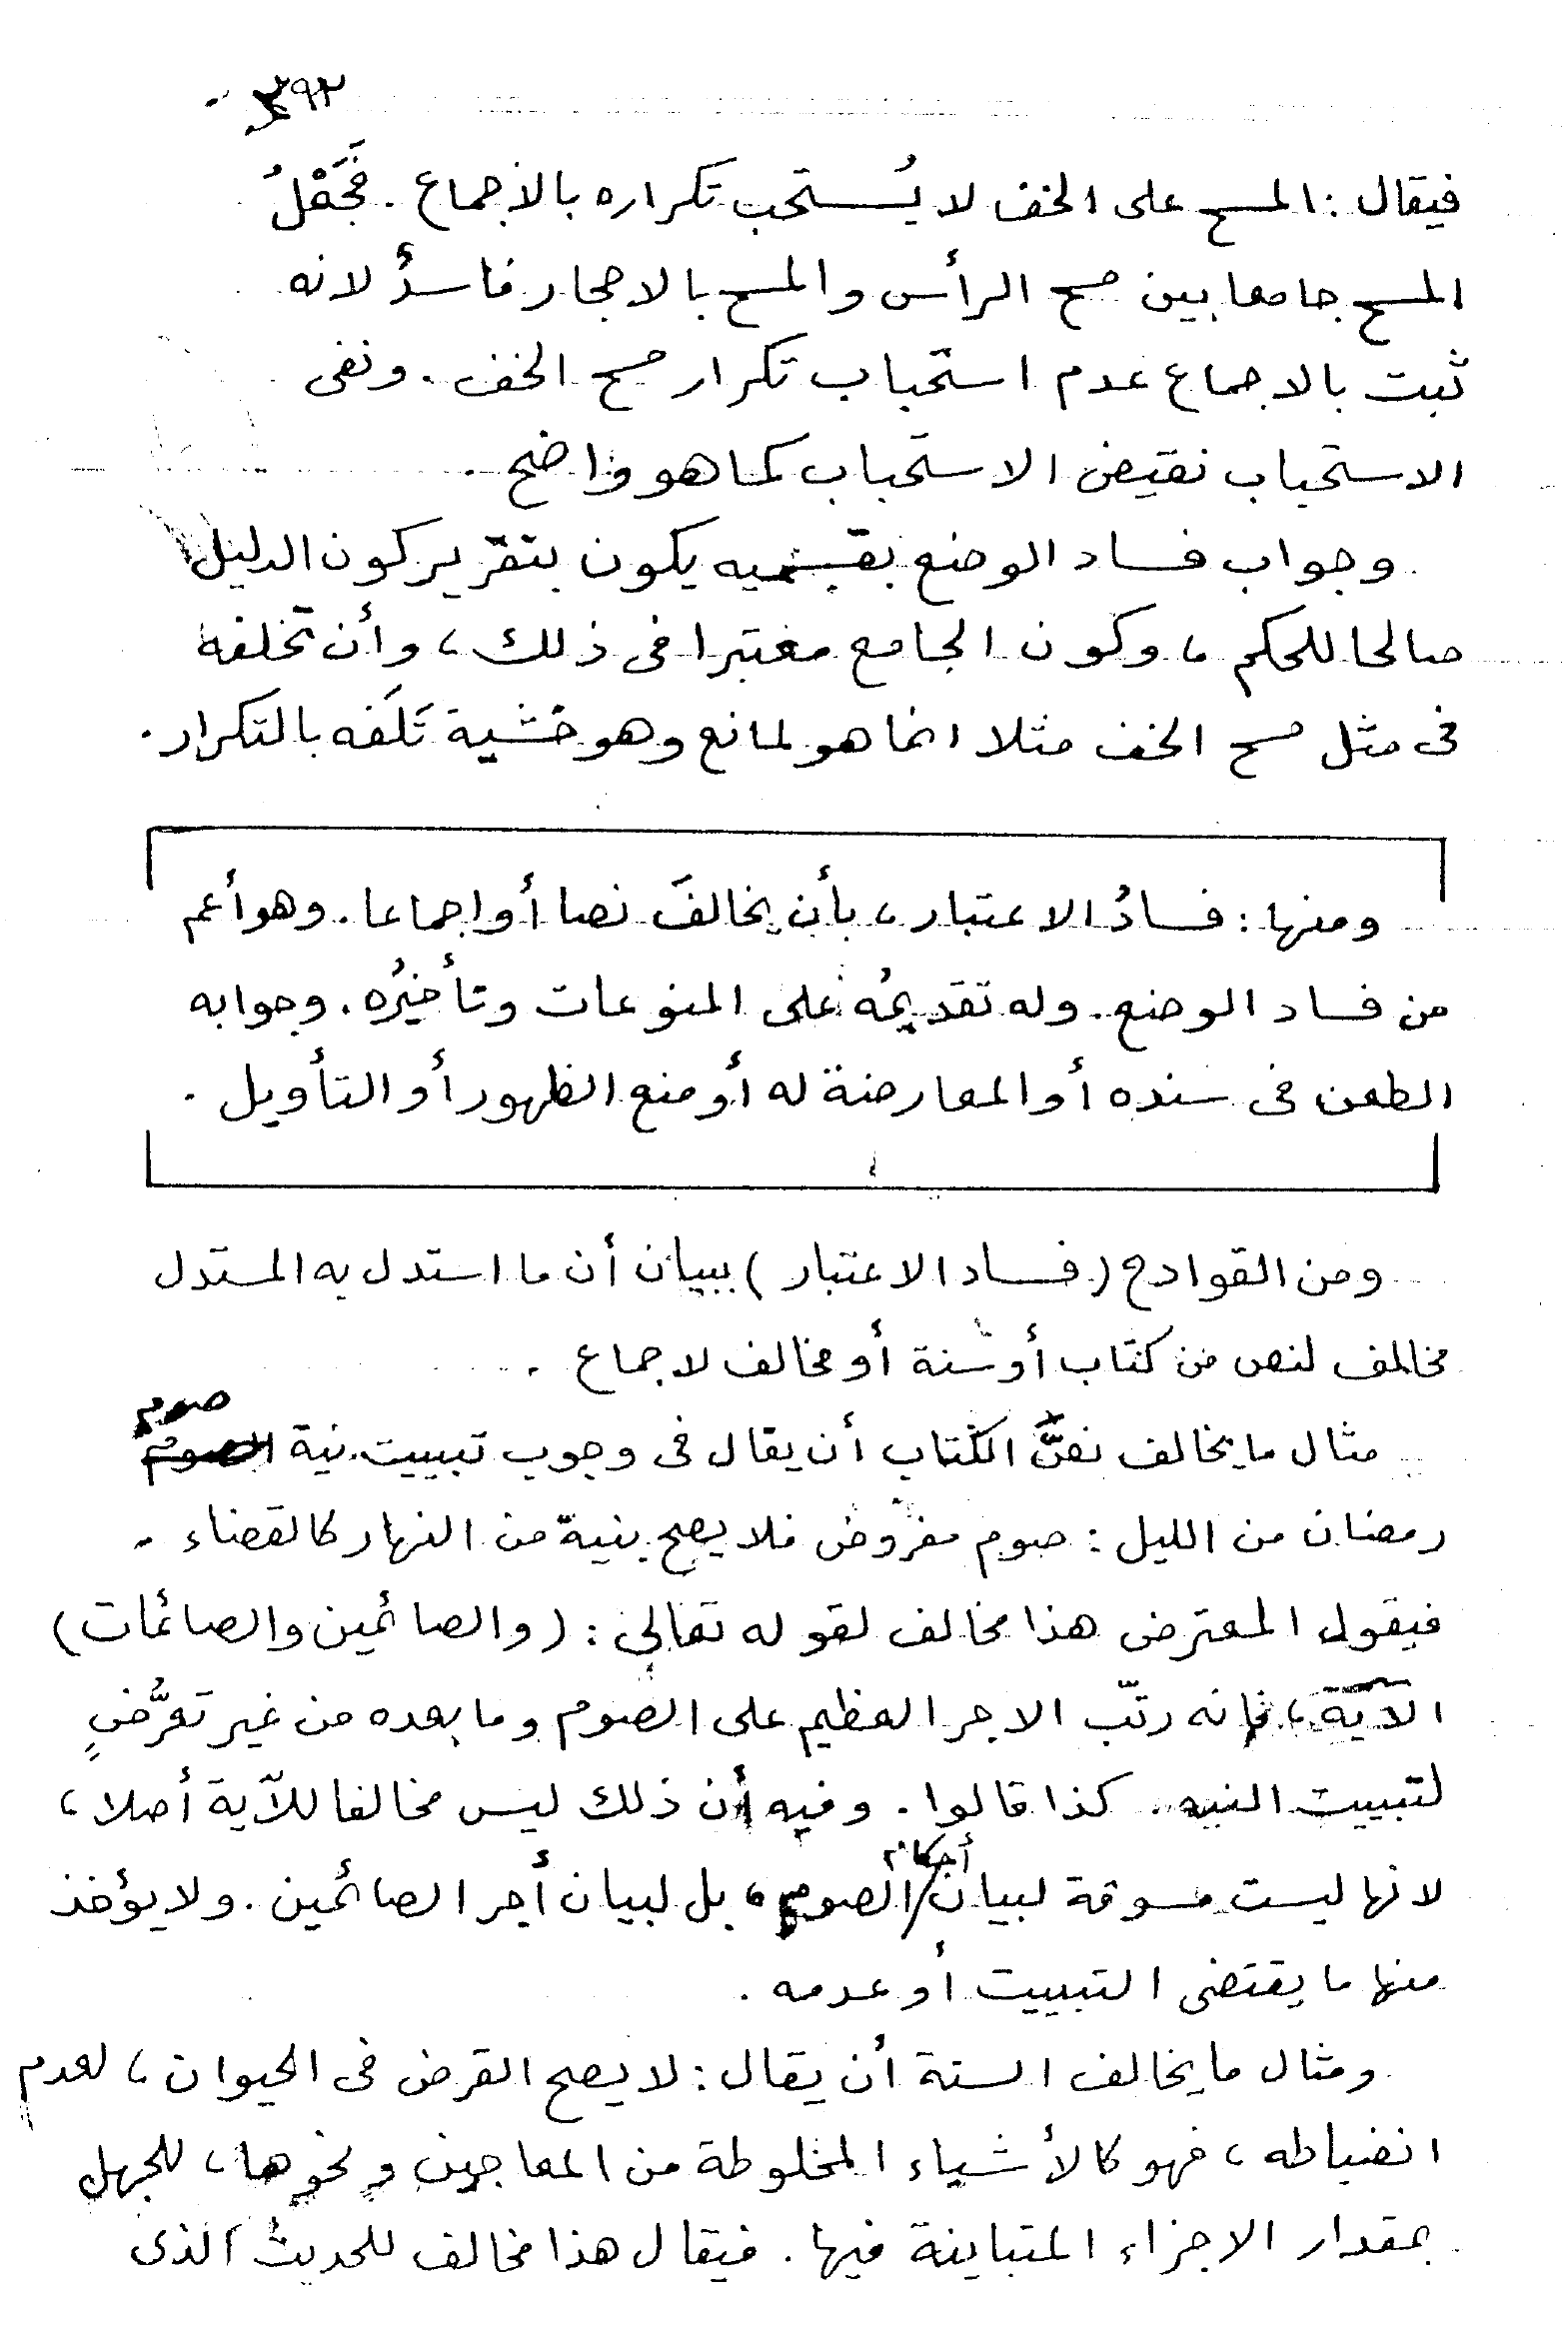 فيقال : المسح على الخف لا يُستحب تكراره بالاجماع . فَجَعْلُ
المسح جامعا بين مسح الرأس والمسح بالاحجار فاسدٌ لانه
ثبت بالاجماع عدم استحباب تكرار مسح الخف . ونفى
الاستحباب نقيض الاستحباب كما هو واضح .
وجواب فساد الوضع بقسميه يكون بتقرير كون الدليل
صالحا للحكم ، وكون الجامع معتبرا فى ذلك ، وأن تخلفه
فى مثل مسح الخف مثلا انما هو لمانع وهو خشية تَلَفه بالتكرار .
ومنها : فسادُ الاعتبار ، بأن يخالفَ نصا أو اجماعا . وهو أعم
من فساد الوضع . وله تقديمُه على المنوعات وتأخيرُه . وجوابه
الطعن فى سنده أو المعارضة له أو منع الظهور أو التأويل .
ومن القوادح (فساد الاعتبار) ببيان أن ما استدل به المستدل
مخالف لنص من كتاب أو سنة أو مخالف لاجماع .
مثال ما يخالف نصَّ الكتاب أن يقال فى وجوب تبييت نية صوم
رمضان من الليل : صوم مفروض فلا يصح بنية من النهار كالقضاء .
فيقول المعترض هذا مخالف لقوله تعالى : (والصائمين والصائمات)
الآية ، فإنه رتّب الاجر العظيم على الصوم وما بعده من غير تعرُّضٍ
لتبييت النيه . كذا قالوا . وفيه أن ذلك ليس مخالفا للآية أصلا ،
لانها ليست مسوقة لبيان أحكام الصوم ، بل لبيان أجر الصائمين . ولا يؤخذ
منها ما يقتضى التبييت أو عدمه .
ومثال ما يخالف السنة أن يقال : لا يصح القرض فى الحيوان ، لعدم
انضباطه ، فهو كالأشياء المخلوطة من المعاجين ونحوها ، للجهل
بمقدار الاجزاء المتباينة فيها . فيقال هذا مخالف للحديث الذى